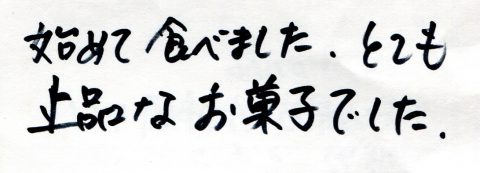 始めて食べました.とても
上品なお菓子でした.